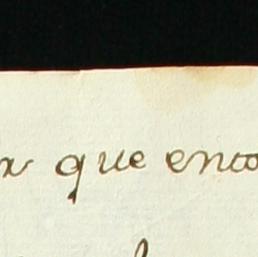 que enco